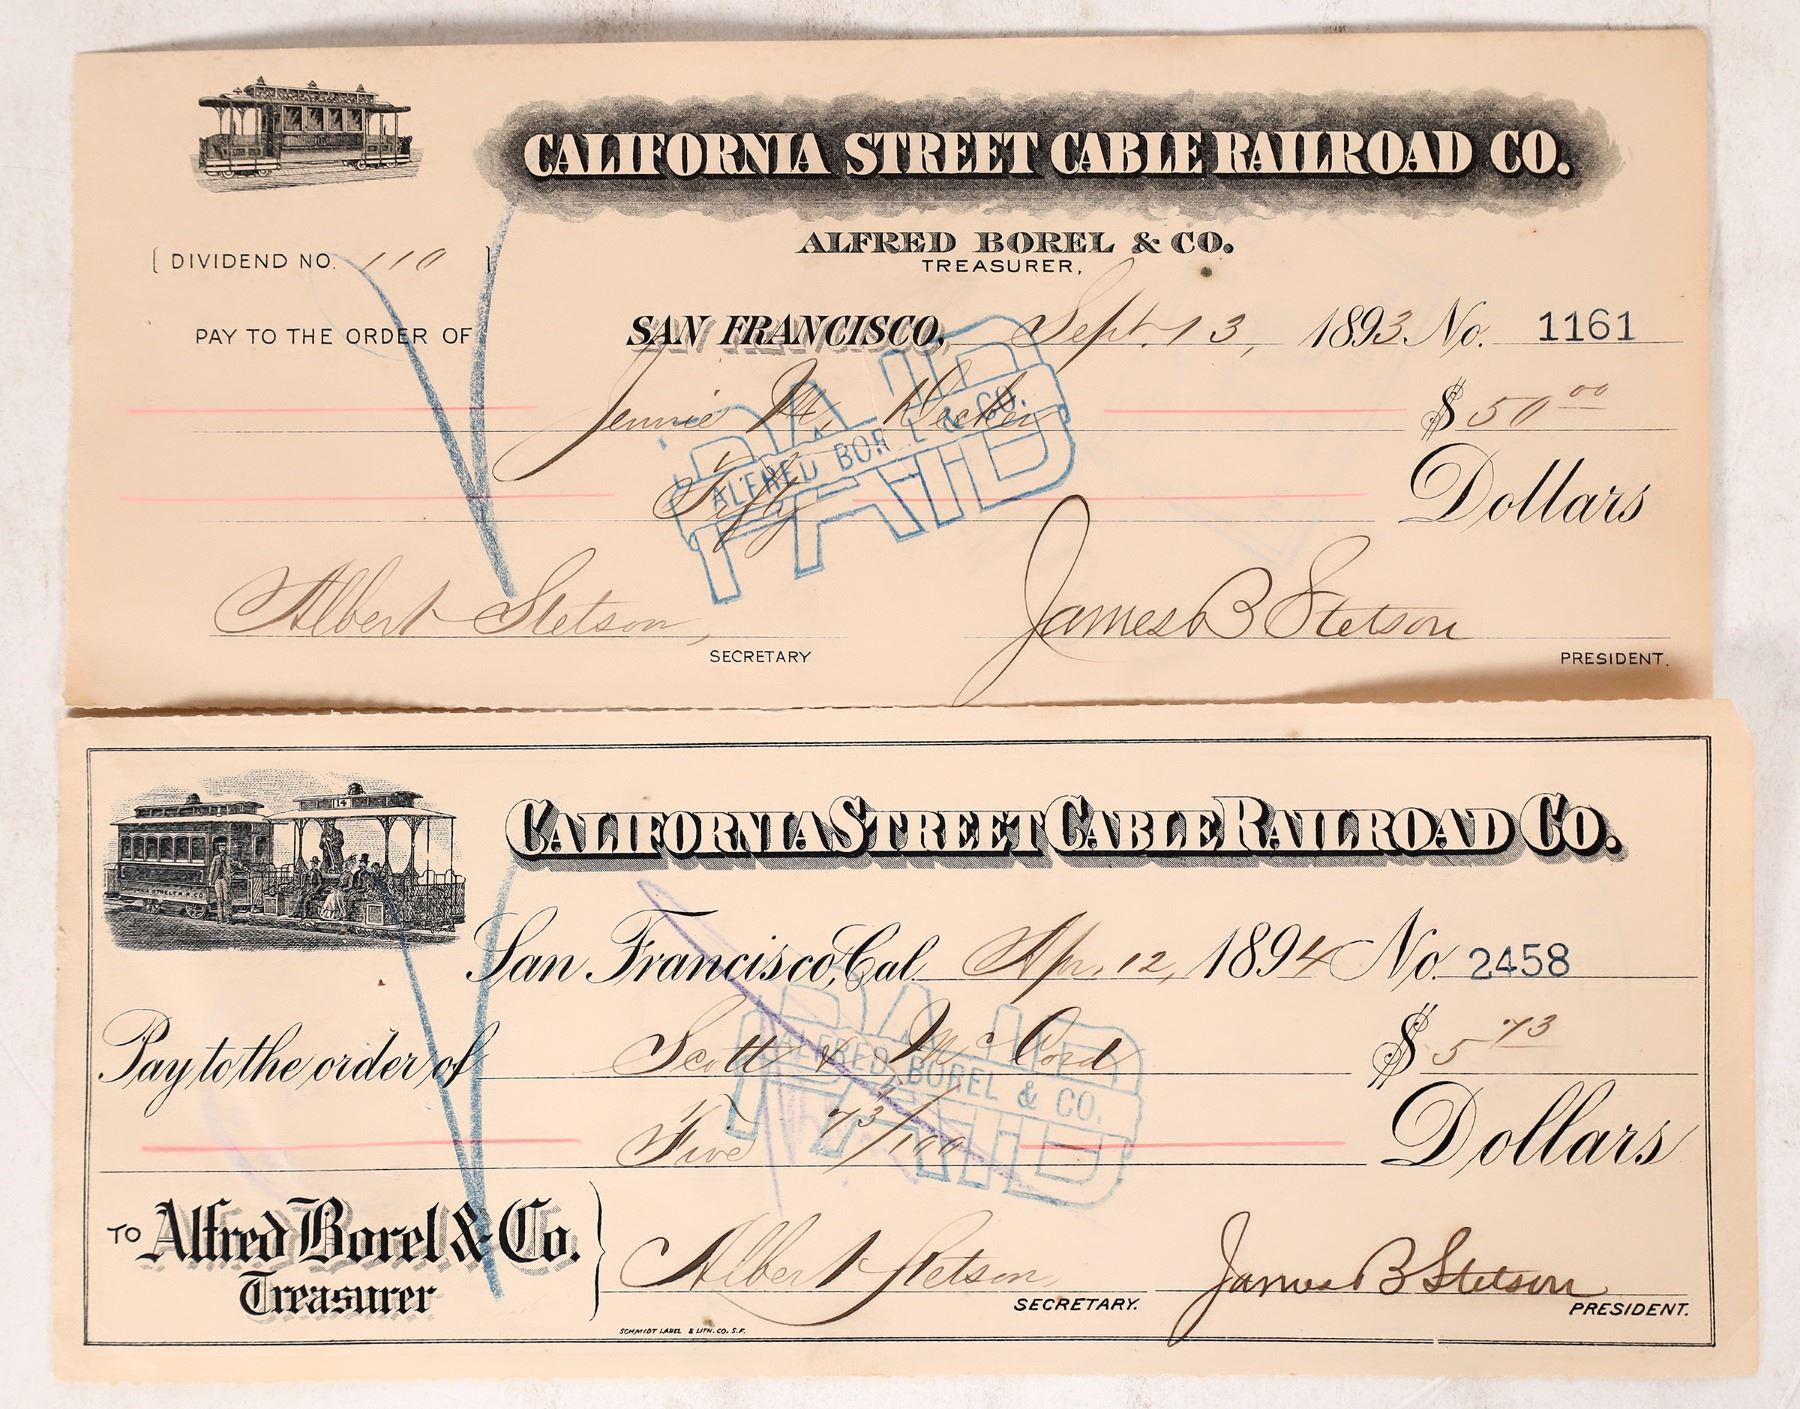 CALIFORNIA STREET CABLE RAILROAD CO.
ALFRED BOREL & CO.
TREASURER,
[ DIVIDEND NO. 110 ]
PAY TO THE ORDER OF
SAN FRANCISCO, Sept. 13, 1893 No. 1161
Jennie M. Decker $ 50 00
Fifty Dollars
PAID
ALFRED BOREL & CO.
PAID
Albert Stetson, James B Stetson
SECRETARY PRESIDENT.
14
CALIFORNIA STREET CABLE RAILROAD CO.
San Francisco, Cal. Apr. 12, 1894 No. 2458
Pay to the order of Scott & McCord $ 5 73
Five 73/100 Dollars
PAID
ALFRED BOREL & CO.
PAID
TO Alfred Borel & Co.
Treasurer
Albert Stetson James B Stetson
SECRETARY. PRESIDENT.
SCHMIDT LABEL & LITH. CO. S.F.